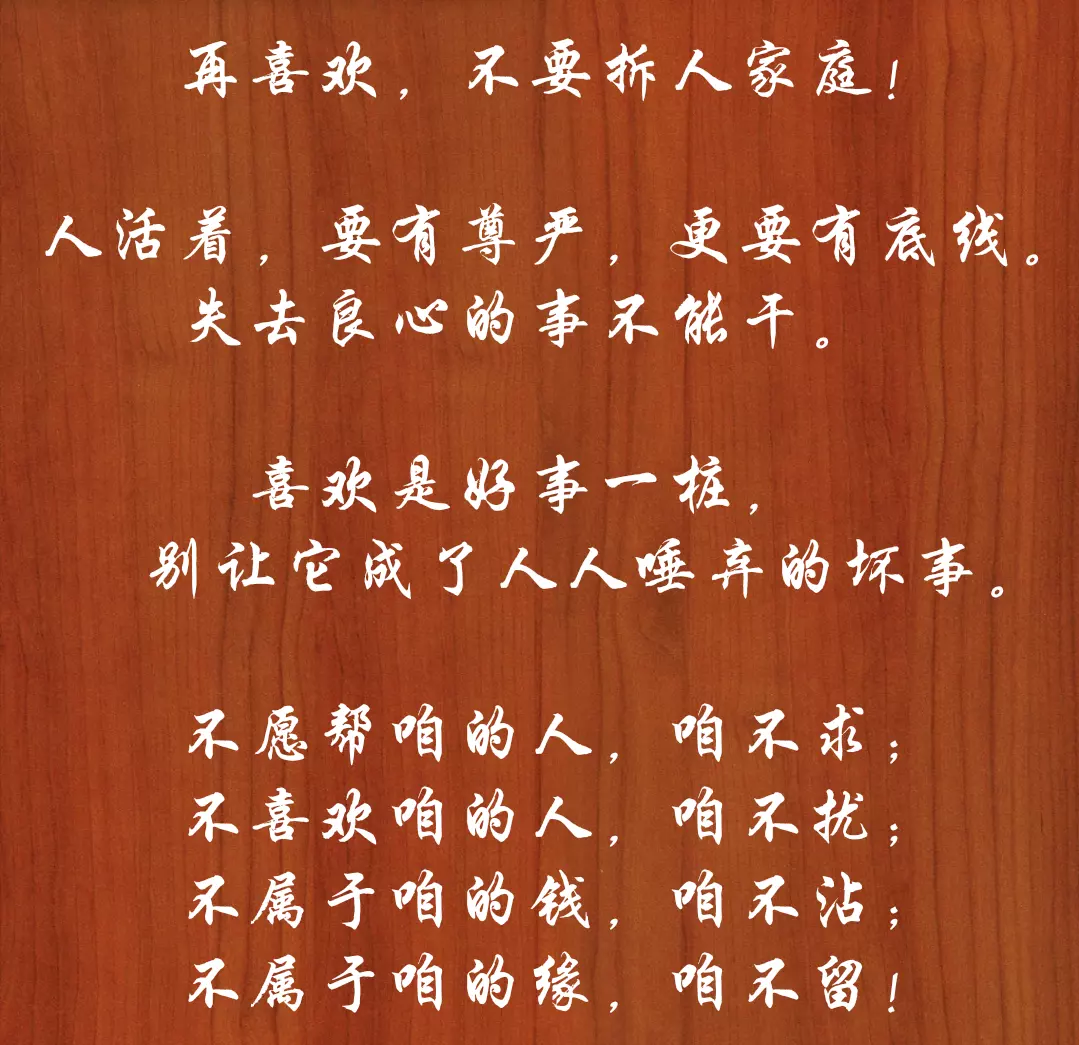 再喜欢，不要拆人家庭！
人活着，要有尊严，更要有底线。
失去良心的事不能干。
喜欢是好事一桩，
别让它成了人人唾弃的坏事。
不愿帮咱的人，咱不求；
不喜欢咱的人，咱不扰；
不属于咱的钱，咱不沾；
不属于咱的缘，咱不留！